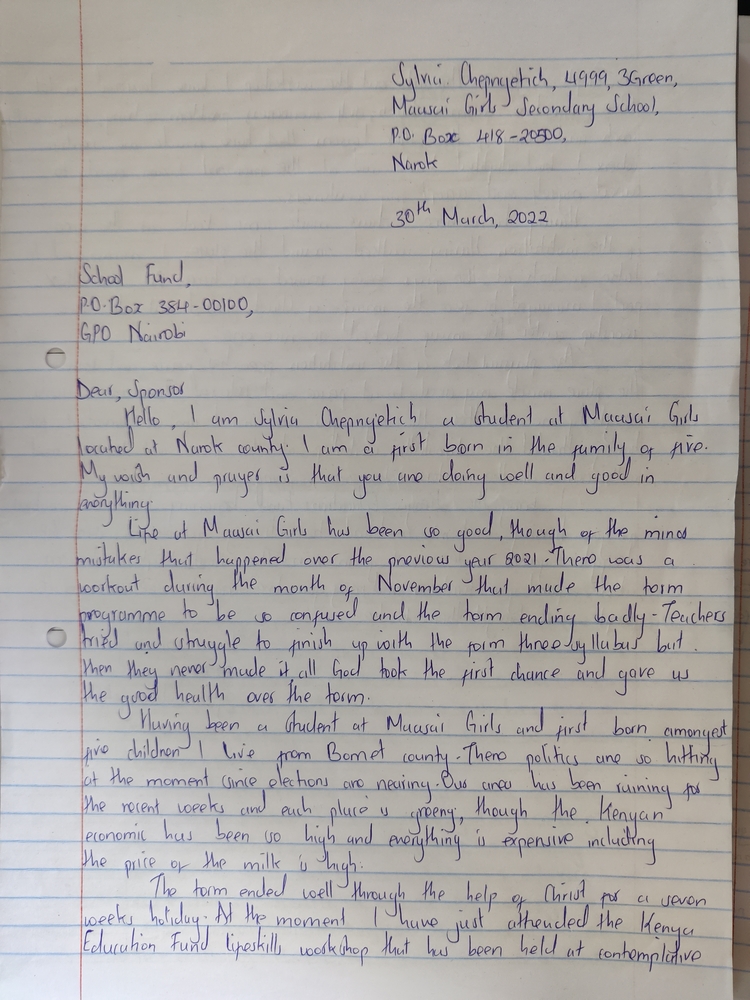 Sylvia Chepngetich, 4999, 3Green,
Maasai Girls Secondary School,
P.O. Box 418-20500,
Narok
30th March, 2022
School Fund,
P.O. Box 384-00100,
GPO Nairobi
Dear, Sponsor
Hello, I am Sylvia Chepngetich a student at Maasai Girls
located at Narok county. I am a first born in the family of five.
My wish and prayer is that you are doing well and good in
everything.
Life at Maasai Girls has been so good, though of the minor
mistakes that happened over the previous year 2021. There was a
workout during the month of November that made the term
programme to be so confused and the term ending badly. Teachers
tried and struggle to finish up with the form three syllabus but
then they never made it all God took the first chance and gave us
the good health over the term.
Having been a student at Maasai Girls and first born amongest
five children I live from Bomet county. There politics are so hitting
at the moment since elections are nearing. Our area has been raining for
the recent weeks and each place is greeny, though the Kenyan
economic has been so high and everything is expensive including
the price of the milk is high.
The term ended well through the help of Christ for a seven
weeks holiday. At the moment I have just attended the Kenya
Education Fund lifeskills workshop that has been held at contemplative